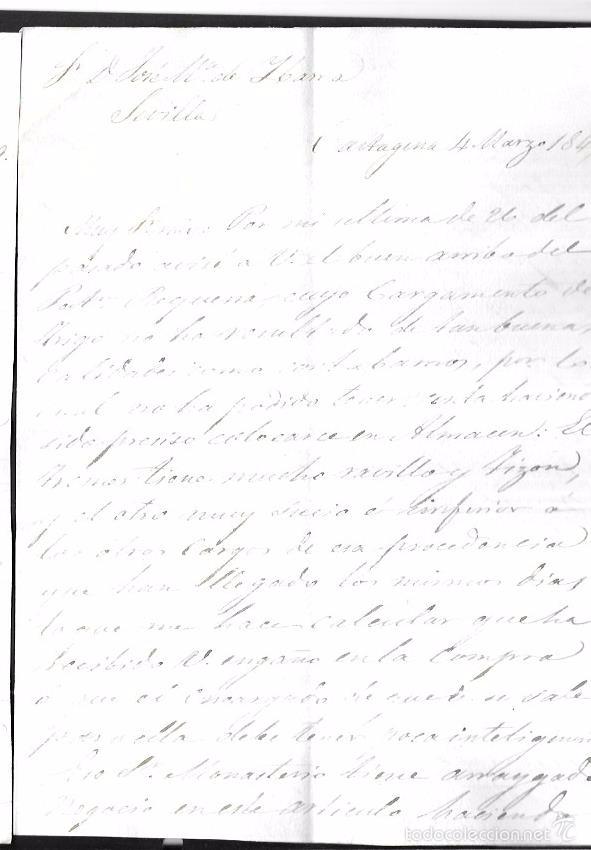 Sr. Dn. José Ma. de Ybarra
Sevilla
Cartagena 4 Marzo 184
Muy Por mi ultima de 26 del
pasado avisé a V. el buen arribo del
Patn. Requena, cuyo Cargamento de
trigo no ha resultado de tan buenas
calidades como contabamos, por lo
cual no ha podido tener venta haviendo
sido preciso colocarse en Almacen: El
tiene mucho y Tizon,
y el otro muy sucio é inferior á
los otros Cargos de esa procedencia
que han llegado los mismos dias
lo que me hace calcular que ha
recibido V. engaño en la Compra
ó que el encargado de que se vale
para ella debe tener poca inteligencia
Sr. Monasterio tiene
Negocio en este articulo haciendo
todocoleccion.net